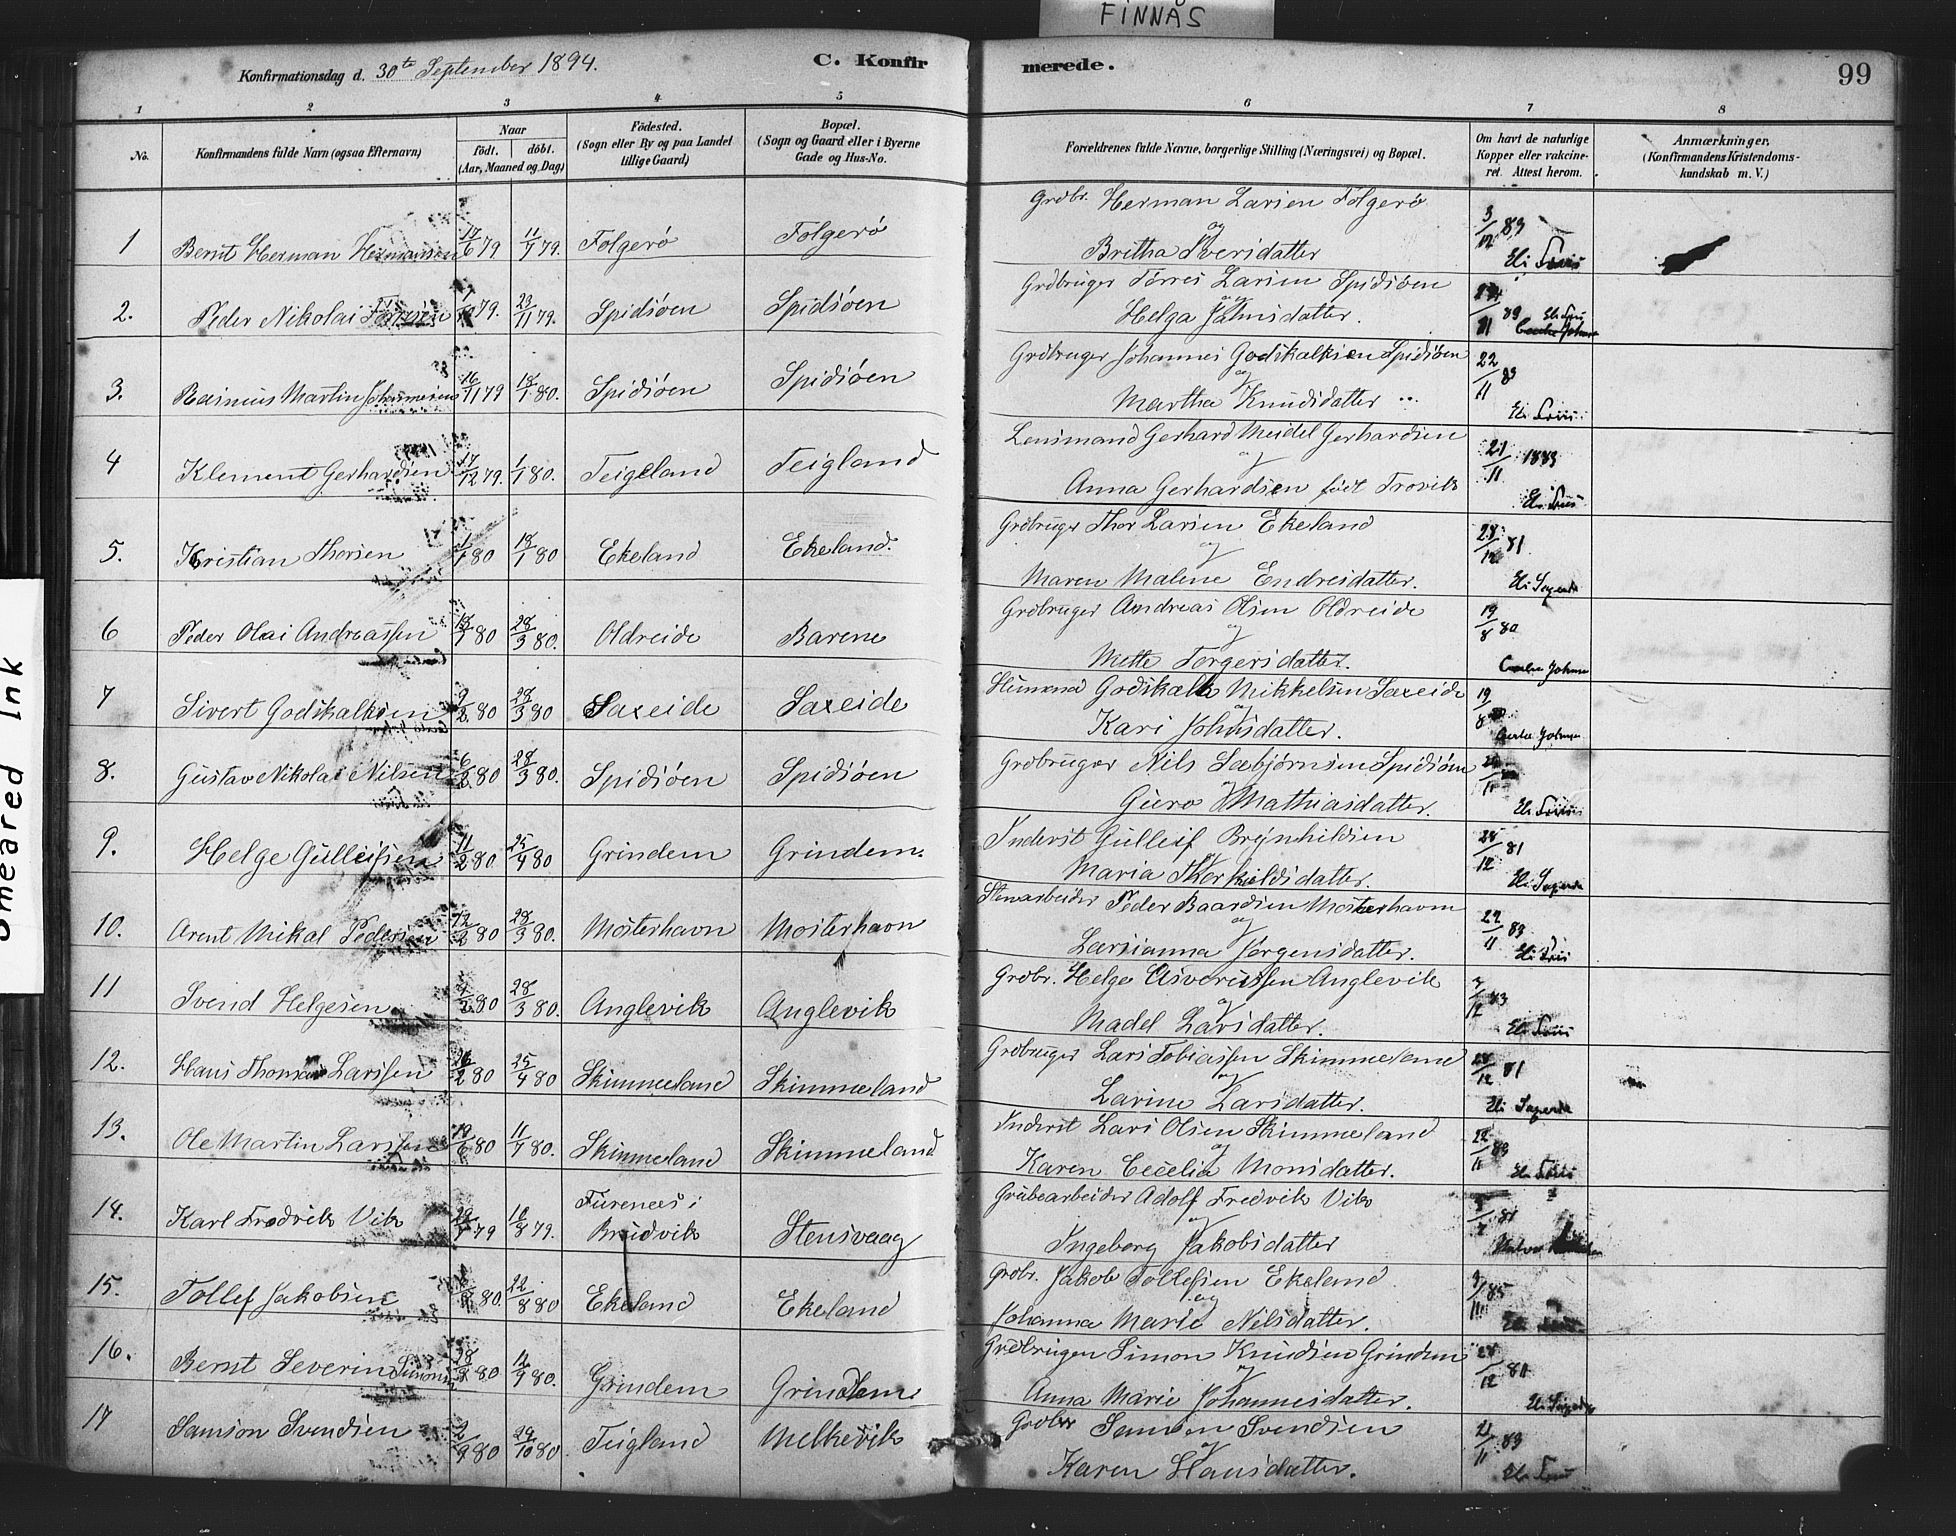 FINNÅS
Konfirmationsdag d. 30te September 1894.
C. Konfirmerede.
99
1 2 3 4 5 6 7 8
No.
Konfirmandens fulde Navn (ogsaa Efternavn)
Naar
födt. döbt.
(Aar, Maaned og Dag)
Födested.
(Sogn eller By og paa Landet
tillige Gaard)
Bopæl.
(Sogn og Gaard eller i Byerne
Gade og Hus-No.
Forældrenes fulde Navne, borgerlige Stilling (Næringsvei) og Bopæl.
Om havt de naturlige
Kopper eller vakcine-
ret. Attest herom.
Anmærkninger.
(Konfirmandens Kristendoms-
kundskab m. V.)
1 Bernt Herman Hermansen 17/6 79 11/7 79. Folgerö Folgerö Grdbr. Herman Larsen Folgerö
og
Bretha Iversdatter 3/12 83
2. Peder Nikolai 79. 23/11 79. Spidsöen Spidsöen Grdbruger Törres Larsen Spidsöen
og
Helga Johnsdatter. 11 83
3. Rasmus Martin Johannesen 16/11 79 18/1 80. Spidsöen Spidsöen Grdbruger Johannes Godskalksen Spidsöen
og
Martha Knudsdatter 22/11 83
4 Klement Gerhardsen 17/12 79. 1/1 80. Teigeland Teigland Lensmand Gerhard Meidel Gerhardsen
og
Anna Gerhardsen födt Trovik 21/11 1883
5. Kristian Thorsen 1/1 80 18/1 80 Ekeland Ekeland. Grdbruger Thor Larsen Ekeland
og
Maren Malene Endresdatter. 28/12 81
6 Peder Olai Andreassen 18/1 80 28/3 80. Oldreide Barene Grdbruger Andreas Olsen Oldreide
og
Mette Torgersdatter. 19/8 80
7 Sivert Godskalksen 2/2 80 28/3 80 Saxeide Saxeide Husmand Godskalk Mikkelsen Saxeide
og
Kari Johnsdatter. 19/8
8. Gustav Nikolai Nilsen 6/2 80 28/3 80. Spidsöen Spidsöen Grdbruger Nils Sæbjörnsen Spidsöen
og
Guro Mathiasdatter.
9. Helge Gulleifsen 11/2 80 25/4 80 Grindem Grindem. Inderst Gulleif Brynhildsen
og
Maria Thorkildsdatter. 28/12 81
10. Arent Mikal Pedersen 12/2 80 28/3 80. Mosterhavn Mosterhavn Stenarbeider Peder Baardsen Mosterhavn
og
Larsianna Jörgensdatter. 22/11 83
11 Svend Helgesen 2 80 28/3 80. Anglevik Anglevik Grdbr. Helge Asverussen Anglevik
og
Madel Larsdatter. 3/12 83
12. Hans Thomas Larssen 26/2 80 25/4 80 Skimmeland Skimmeland Grdbruger Lars Tobiassen Skimmeland
og
Larine Larsdatter. 28/12 81
13. Ole Martin Larssen 19/6 80 11/7 80. Skimmeland Skimmeland Inderst Lars Olsen Skimmeland
og
Karen Cecelia Monsdatter. 22/11 83
14. Karl Fredrik Vik 79 10/8 79. Furenæs i
Bruдvik Stensvaag Grubearbeider Adolf Fredrik Vik
og
Ingeborg Jakobsdatter 81
15. Tollef Jakobsen 80. 22/8 80 Ekeland Ekeland Grdbr. Jakob Tollefsen Ekeland
og
Johanna Marie Nilsdatter. 11 85
16. Bernt Severin Simonsen 28 80 12/9 80. Grindem Grindem Grdbrugen Simon Knudsen Grindem
og
Anna Marie Johannesdatter. 28/12 81
17 Samson Svendsen 2/9 80 29/10 80 Teigland Melkevik Grdbr Samson Svendsen
og
Karen Hansdatter. 21/11 83
Smeared Ink